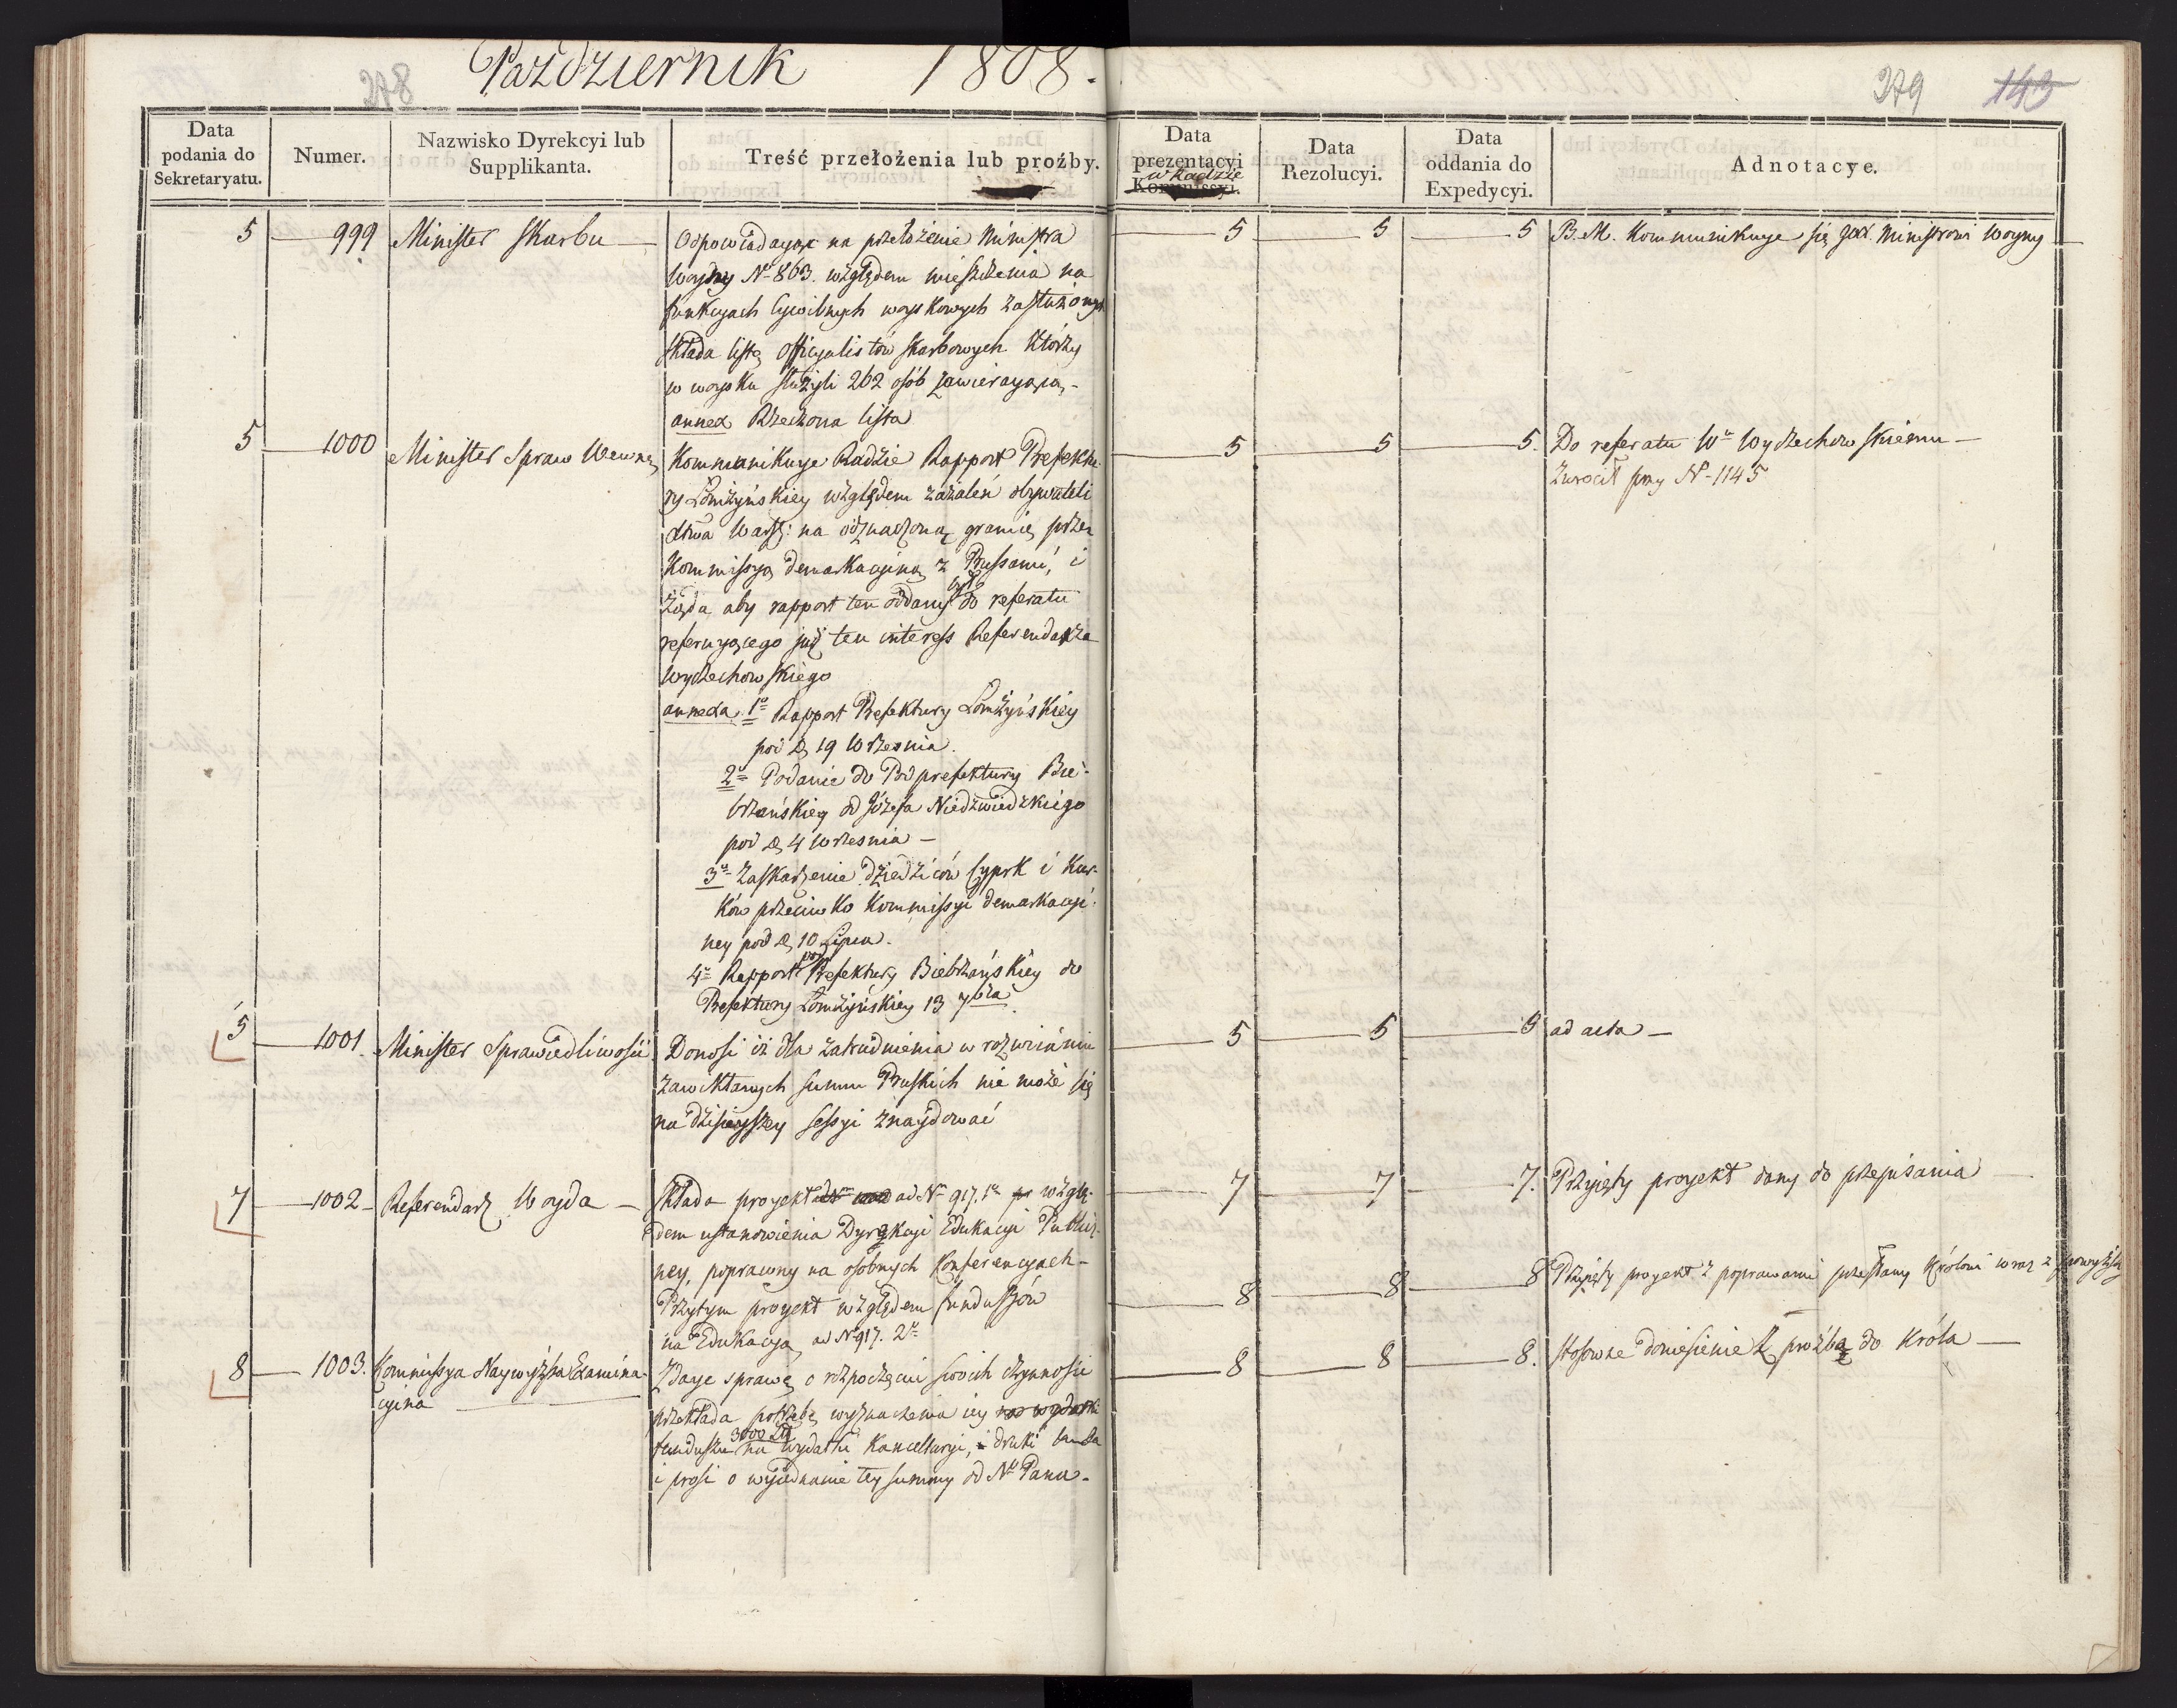 278
Październik 1808.
379 143
Data podania do Sekretaryatu.
Numer.
Nazwisko Dyrekcyi lub Supplikanta.
Treść przełożenia lub proźby.
Data prezentacyi w Radzie Kommissyi.
Data Rezolucyi.
Data oddania do Expedycyi.
Adnotacye.
5 999 Minister Skarbu
Odpowiadaiąc na przełożenie Ministra
Woyny Nº 863. względem mieszczenia na
funkcyach Cywilnych woyskowych zasłużonych
składa listę officyalistów skarbowych którzy
w woysku służyli 262 osób zawieraiącą,-
annex Rzeczona lista
5 5 5 B. M. Kommunikuye się Ministrowi Woyny
5 1000 Minister Spraw Wewnę
Kommunikuye Radzie Rapport Prefektu-
ry Łomżyńskiey względem zażaleń obywateli
Xtwa Warsz: na odznaczoną granicę przez
Kommissyą demarkacyiną z Prussami, i
żąda aby rapport ten oddany był do referatu
referuiącego już ten interess Referendarza
Wyczechowskiego
annexa. 1º Rapport Prefektury Łomżyńskiey
pod d. 19 Września.
2º Podanie do Podprefektury Bie-
brzańskiey od Józefa Niedźwiedzkiego
pod d. 4 Września –
3º Zaskarżenie dziedziców Cyprk i Kur-
ków przeciwko Kommissyi demarkacyi-
ney pod d. 10 Lipca.
4º Rapport Pod Prefektury Biebrzańskiey do
Prefektury Łomżyńskiey 13 7bra.
5 5 5. Do referatu Wº Wyczechowskiemu –
Zwrócił przy Nº 1145
5 1001. Minister Sprawiedliwości
Donosi iż dla zatrudnienia w rozwianiu
zawikłanych summ Pruskich nie może się
na dzisieyszey sessyi znaydować
5 5 5 ad acta –
7 1002 Referendarz Woyda –
Składa proyekt ad Nº 917. 1º wzglę-
dem ustanowienia Dyrekcyi Edukacyi Publicz-
ney, poprawny na osobnych Konferencyach –
Przytym proyekt względem funduszów
na Edukacyą ad Nº 917. 2º
7 7 7. Przyięty proyekt dany do przepisania
8 8 8 Przyięty proyekt z poprawami przesłany Królowi wraz z powyższy
8 1003. Kommissya Naywyższa Examina-
cyina
Zdaye sprawę o rozpoczęciu swoich czynności
przekłada potrzebę wyznaczenia iey
funduszu 3000 Zł na wydatki Kancellaryi, i druki
i prosi o wyiednanie tey summy od Nº Pana.
8 8 8. Stosowne doniesienie z prożbą do Króla –